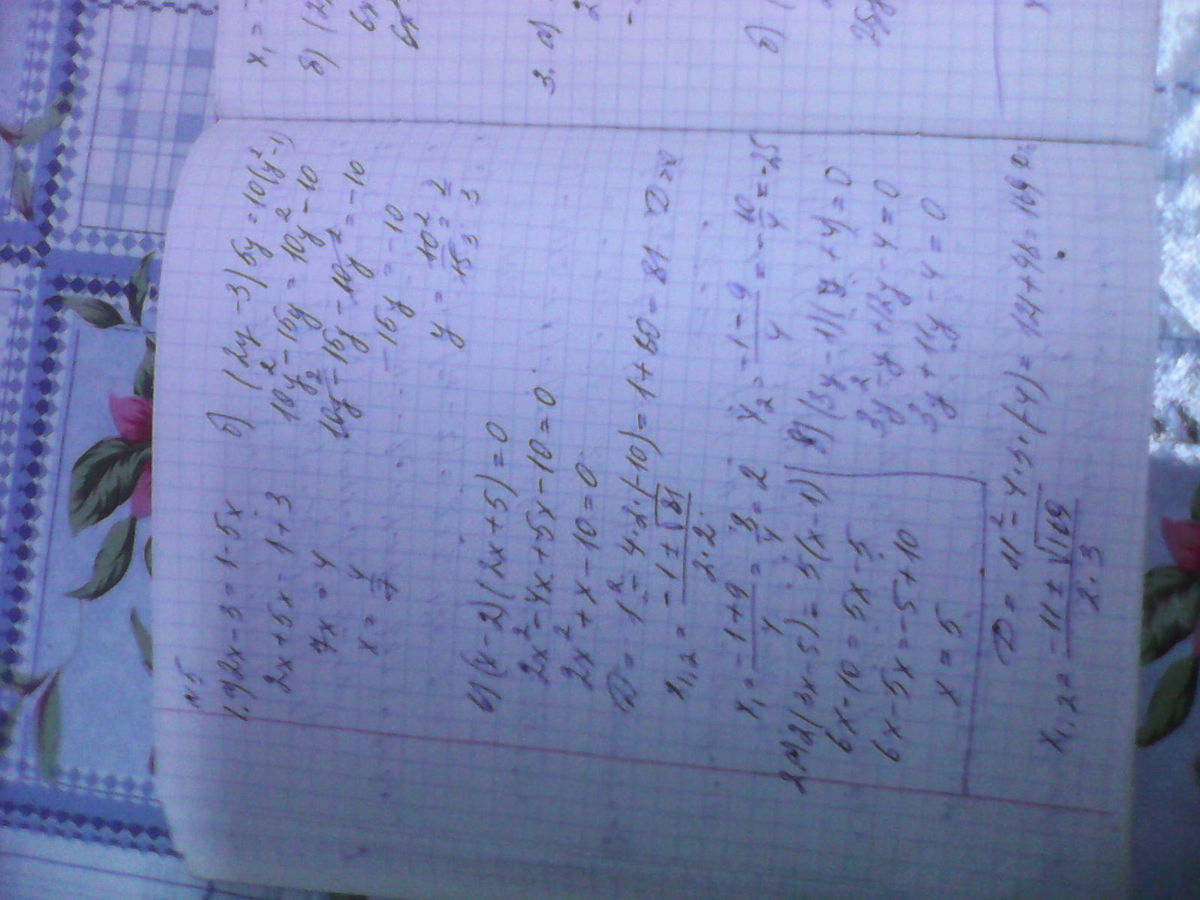 №5
1. а) 2x - 3 = 1 - 5x
2x + 5x = 1 + 3
7x = 4
x = 4/7
б) (2y - 3) 5y = 10(y² - 1)
10y² - 15y = 10y² - 10
10y² - 15y - 10y² = -10
-15y = -10
y = 10²/15₃ = 2/3
в) (x - 2)(2x + 5) = 0
2x² - 4x + 5x - 10 = 0
2x² + x - 10 = 0
D = 1² - 4·2·(-10) = 1 + 80 = 81
x₁,₂ = (-1 ± √81)/(2·2)
x₁ = (-1 + 9)/4 = 8/4 = 2
x₂ = (-1 - 9)/4 = -10/4 = -2,5
2. а) 2(3x - 5) = 5(x - 1)
6x - 10 = 5x - 5
6x - 5x = -5 + 10
x = 5
в) (3y - 1)(y + 4) = 0
3y² - y + 12y - 4 = 0
3y² + 11y - 4 = 0
D = 11² - 4·3·(-4) = 121 + 48 = 169
x₁,₂ = (-11 ± √169)/(2·3)
x₁ =
б) (2
6x
6x
3. а)
2
-
б) (